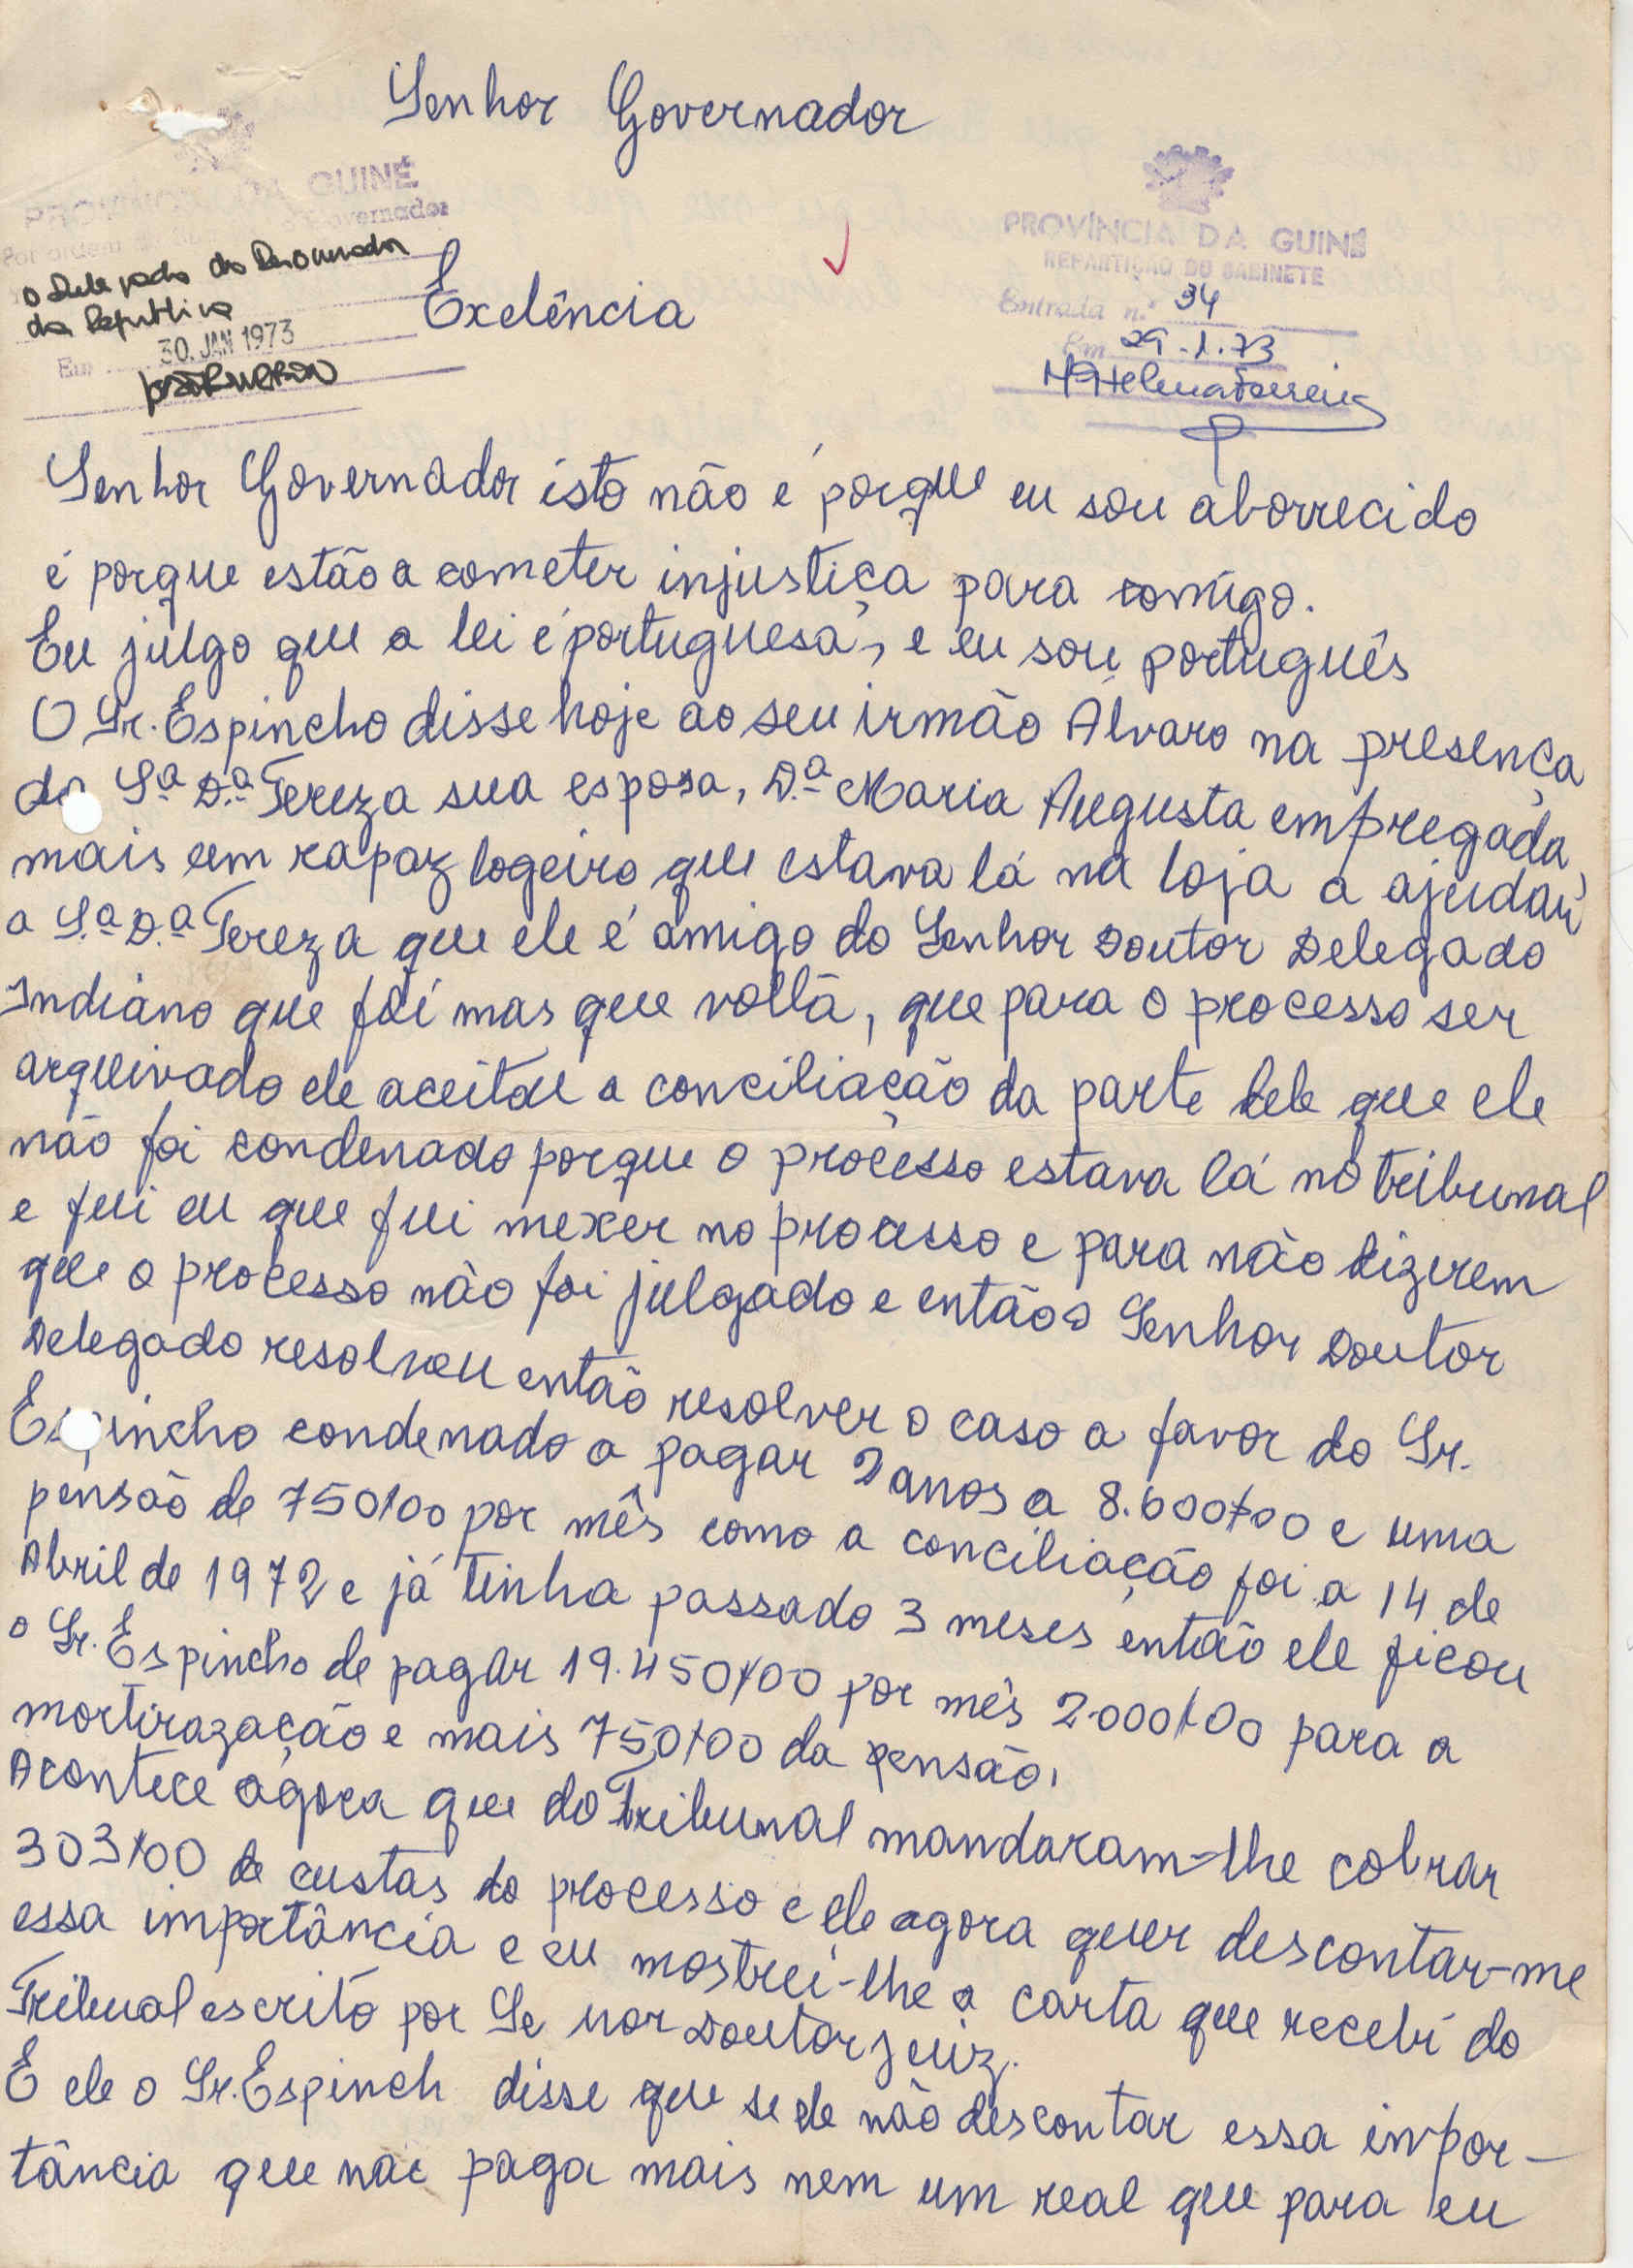 Senhor Governador
PROVÍNCIA DA GUINÉ
Por ordem Governador
o Delegado do Procurador
da República
Em 30. JAN 1973
Exelência
PROVÍNCIA DA GUINÉ
REPARTIÇÃO DO GABINETE
Entrada n.º 34
Em 29.1.73
Mª Helena Ferreira
Senhor Governador isto não é porque eu sou aborrecido
é porque estão a cometer injustiça para comigo.
Eu julgo que a lei é portuguesa, e eu sou português
O Sr. Espincho disse hoje ao seu irmão Álvaro na presença
da Sª D.ª Tereza sua esposa, D.ª Maria Augusta empregada,
mais um rapaz logeiro que estava lá na loja a ajudar
a S.ª D.ª Tereza que ele é amigo do Senhor Doutor Delegado
Indiano que foi mas que voltā, que para o processo ser
arqueivado ele aceitou a conciliação da parte dele que ele
não foi condenado porque o processo estava lá no tribunal
e fui eu que fui mexer no processo e para não dizerem
que o processo não foi julgado e então o Senhor Doutor
Delegado resolveu então resolver o caso a favor do Sr.
Espincho condenado a pagar 2 anos a 8.600$00 e uma
pensão de 750$00 por mês como a conciliação foi a 14 de
Abril de 1972 e já tinha passado 3 meses então ele ficou
o Sr. Espincho de pagar 19.450$00 por mês 2.000$00 para a
mortirazação e mais 750$00 da pensão.
Acontece agora que do Tribunal mandaram-lhe cobrar
303$00 de custas do processo e ele agora quer descontar-me
essa importância e eu mostrei-lhe a carta que recebi do
Tribual escrito por Se nor Doutor juiz.
E ele o Sr. Espinch disse que se ele não descontar essa impor-
tância que não paga mais nem um real que para eu